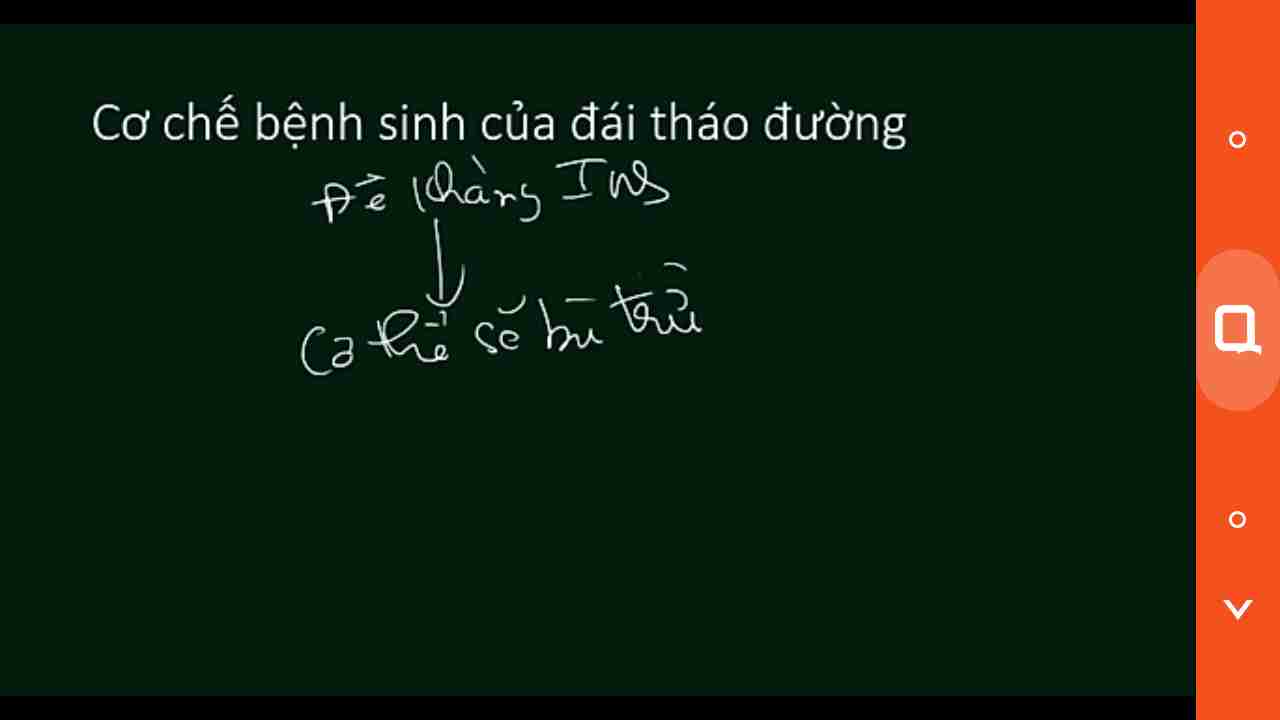 Cơ chế bệnh sinh của đái tháo đường
Đề kháng INS
Cơ thể sẽ bù trừ